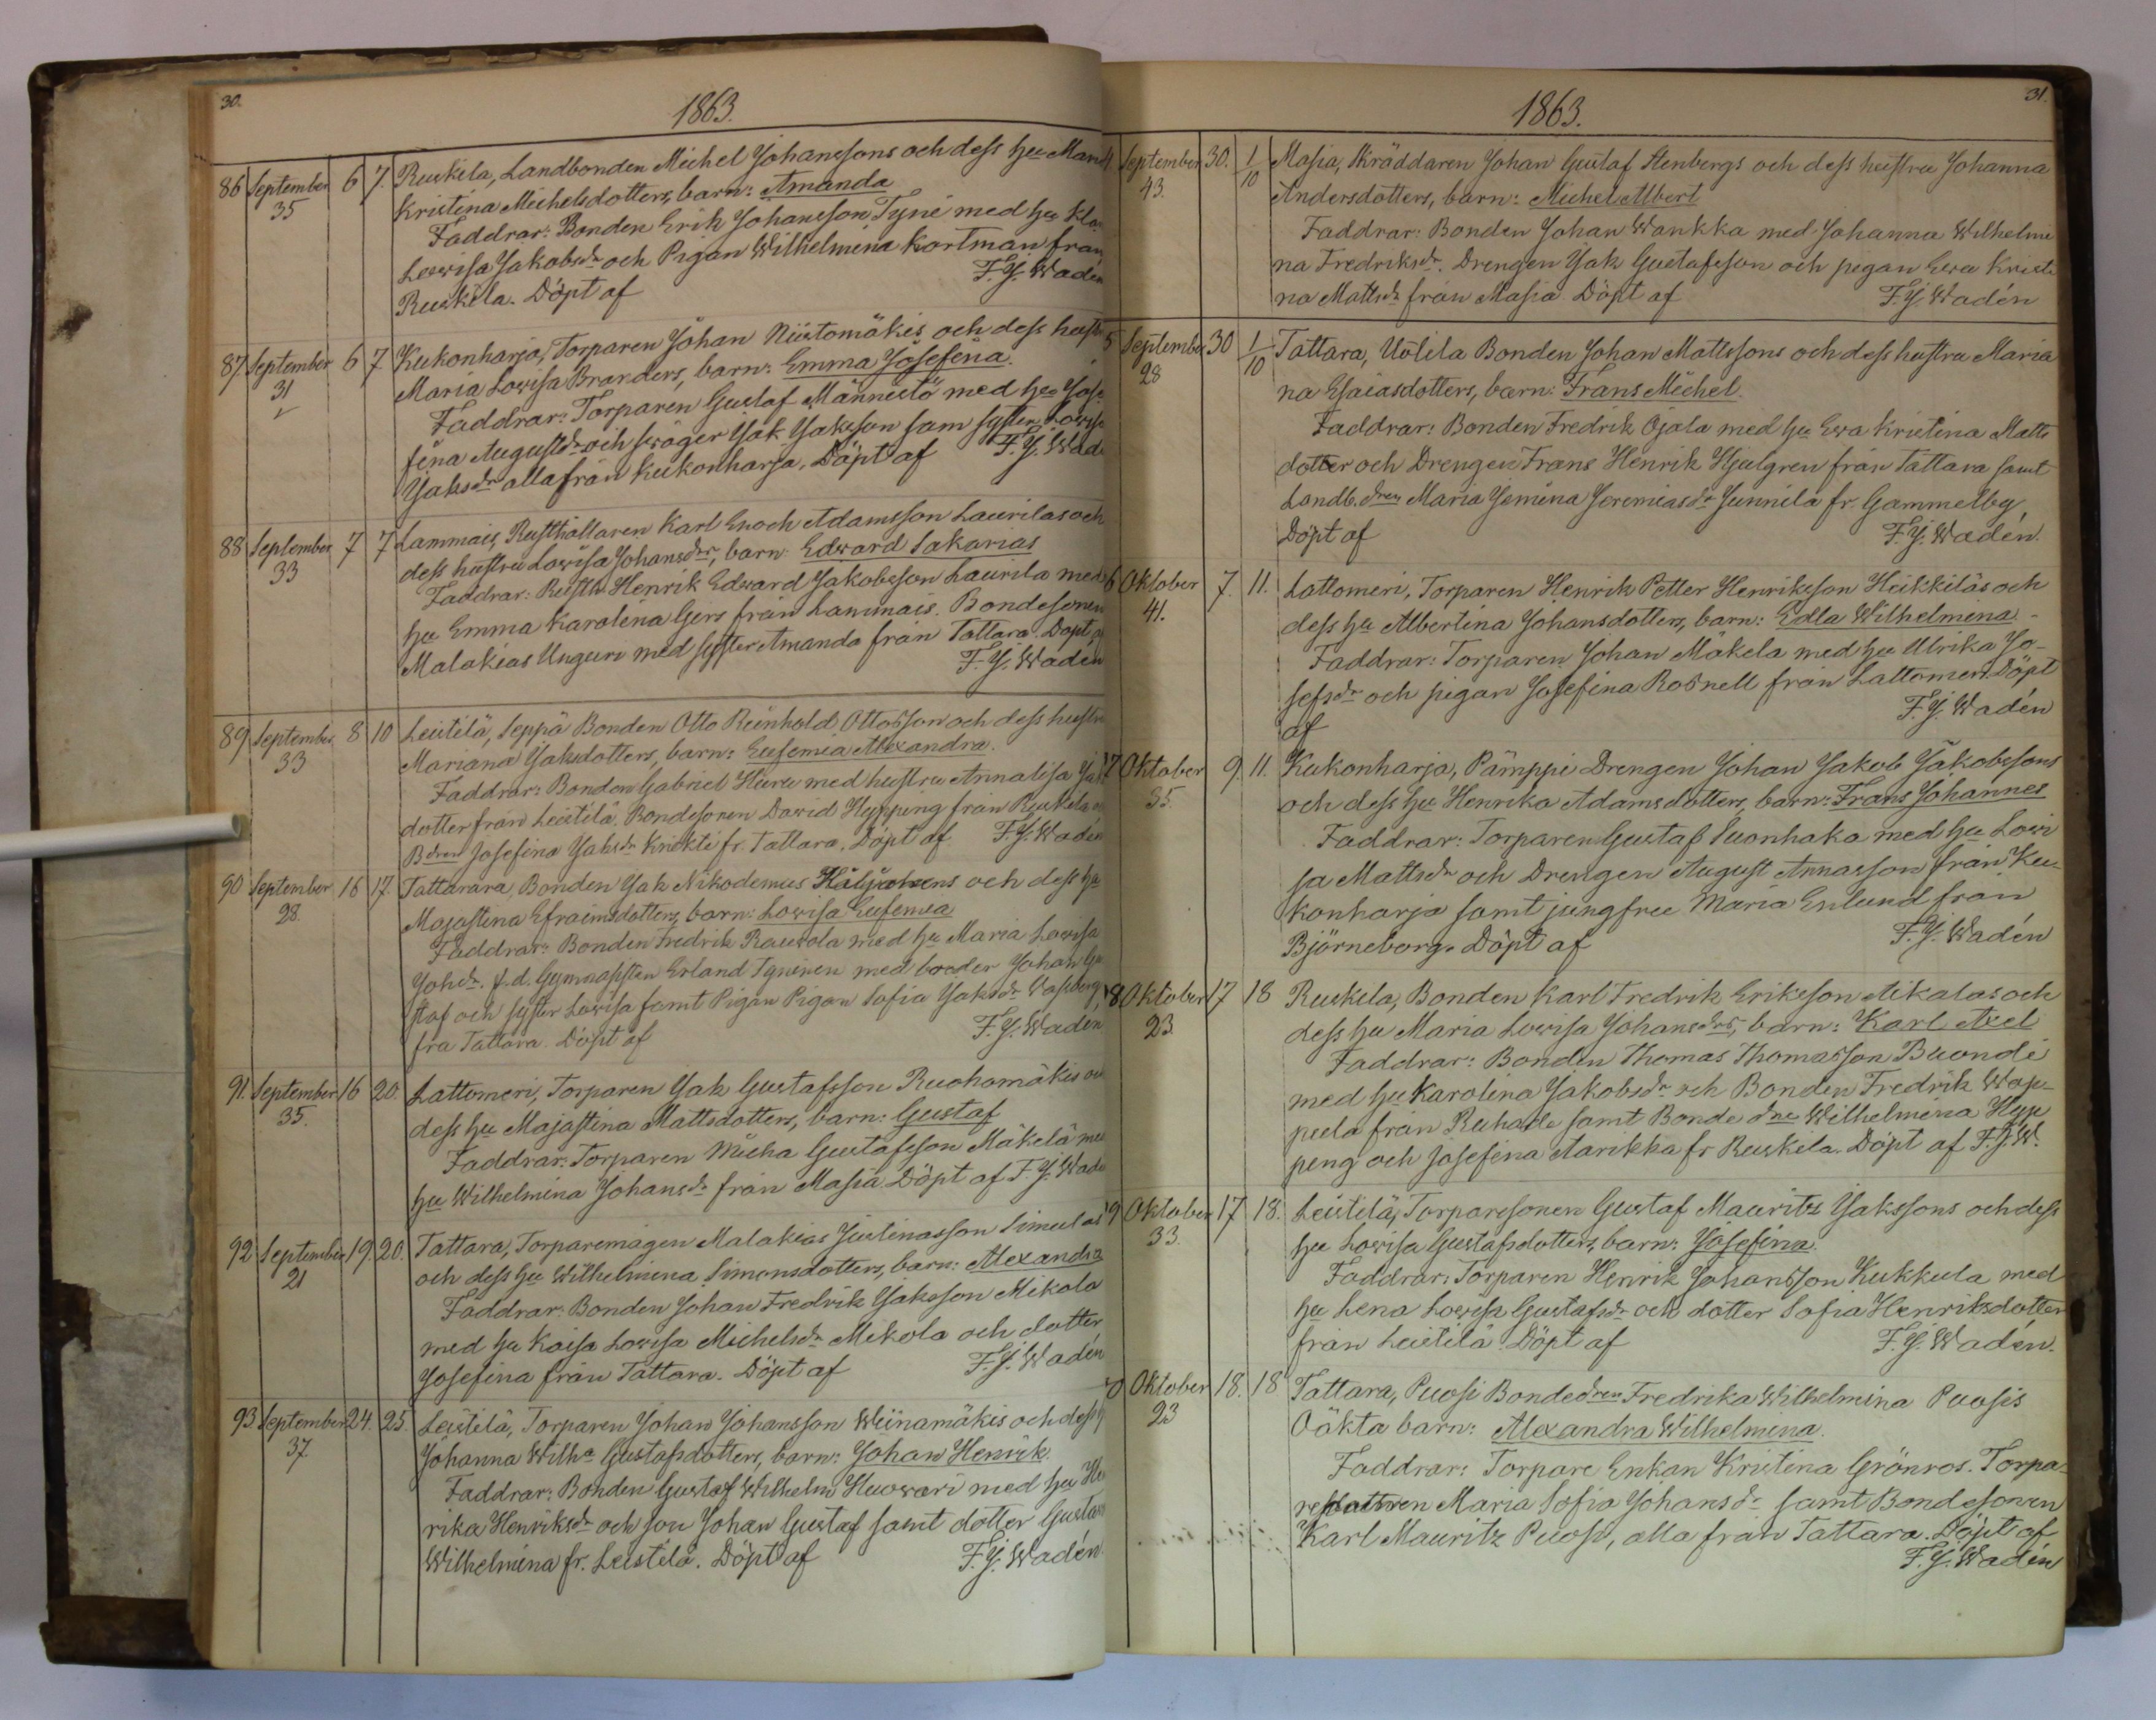 30.
1863.
86 September 6 7. Ruskila, Landbonden Michel Johanssons och dess hu Mari
35 Kristina Michelsdotters, barn: Amanda
Faddrar: Bonden Erik Johansson Tyni med hu
Lowisa Jakobsdr och Pigan Wilhelmina Kortman från
Ruskila. Döpt af F. J. Wadén
87 September 6 7 Kukonharja, Torparen Johan Niistomäkis och dess hust
31 Maria Lowisa Branders, barn: Emma Josefina.
Faddrar: Torparen Gustaf Männistö med hu Jose
fina Augustsdr och swåger Jak Jaksson sam syster Lowisa
Jaksdr alla från Kukonharja. Döpt af F. J. Wad
88 September 7 7 Lammais, Rusthållaren Karl Enoch Adamsson Laurilas och
33 dess hustru Lowisa Johansdrs, barn: Edward Sakarias
Faddrar: Rusth. Henrik Edward Jakobsson Laurila med
hu Emma Karolina Gers från Lammais. Bondesonen
Malakias Unguri med syster Amanda från Tattara. Döpt
F. J. Wadén
89 September 8 10 Leistilä, Seppä Bonden Otto Reinhold Ottosson och dess hustru
33 Mariana Jaksdotters, barn: Eufemia Alexandra.
Faddrar: Bonden Gabriel Huru med hustru Annalisa Jaks
dotter från Leistilä. Bondesonen Dawid Hyppeng från Ruskila
Bdren Josefina Jaksdr Knihti fr. Tattara. Döpt af F. J. Wadén
90 September 16 17. Tattarara, Bonden Jak Nikodemus och dess hu
28. Majastina Efraimsdotters, barn: Lowisa Eufemia
Faddrar: Bonden Fredrik Rauwola med hu Maria Lowisa
Johsdr. f. d. Gymnasisten Erland Tyninen med broder Johan Gu
staf och syster Lowisa samt Pigan Pigan Sofia Jaksdr
fra Tattara. Döpt af F. J. Wadén
91. September 16 20. Lattomeri, Torparen Jak Gustafsson Ruohomäkis och
35. dess hu Majastina Mattsdotters, barn: Gustaf
Faddrar: Torparen Micha Gustafsson Mäkelä med
hu Wilhelmina Johansdr från Masia. Döpt af F. J. Wadé
92 September 19. 20. Tattara, Torparemågen Malakias Justinasson Simulas
21 och dess hu Wilhelmina Simonsdotters, barn: Alexandra
Faddrar: Bonden Johan Fredrik Jaksson Mikola
med hu Kaisa Lowisa Michelsdr Mikola och dotter
Josefina från Tattara. Döpt af F. J. Wadén
93. September 24. 25. Leistilä, Torparen Johan Johansson Wiinamäkis och dess h
37. Johanna Wilha Gustafsdotters, barn: Johan Henrik.
Faddrar: Bonden Gustaf Wilhelm Huowari med hu He
rika Henriksdr och son Johan Gustaf samt dotter Gusta
Wilhelmina fr. Leistilä. Döpt af F. J. Wadén.
31.
1863.
4 September 30. 1/10 Masia, Skräddaren Johan Gustaf Stenbergs och dess hustru Johanna
43. Andersdotters, barn: Michel Albert
Faddrar: Bonden Johan Wankka med Johanna Wilhelmi
na Fredriksdr. Drengen Jak Gustafsson och pigan Ewa Kristi
na Mattsdr från Masia. Döpt af F. J. Wadén
5 September 30 1/10 Tattara, Uotila Bonden Johan Mattssons och dess hustru Maria
28 na Esaiasdotters, barn: Frans Michel.
Faddrar: Bonden Fredrik Ojala med hu Ewa Kristina Matts
dotter och Drengen Frans Henrik Hjulgren från Tattara samt
Landb. dren Maria Jemina Jeremiasdr Junnila fr. Gammelby,
Döpt af F. J. Wadén.
6 Oktober 7. 11. Lattomeri, Torparen Henrik Petter Henriksson Heikkiläs och
41. dess hu Albertina Johansdotters, barn: Edla Wilhelmina.
Faddrar: Torparen Johan Mäkela med hu Ulrika Jo-
sefsdr och pigan Josefina Rosnell från Lattomeri. Döpt
af F. J. Wadén
7 Oktober 9. 11. Kukonharja, Pämppi Drengen Johan Jakob Jakobssons
35. och dess hu Henrika Adamsdotters, barn: Frans Johannes
Faddrar: Torparen Gustaf Suonhaka med hu Lowi
sa Mattsdr och Drengen August Annasson från Ku-
konharja samt jungfru Maria Enlund från
Björneborg. Döpt af F. J. Wadén
8 Oktober 17 18 Ruskela, Bonden Karl Fredrik Eriksson Mikalas och
23. dess hu Maria Lowisa Johansdrs, barn: Karl Axel
Faddrar: Bonden Thomas Thomasson Buondi
med hu Karolina Jakobsdr och Bonden Fredrik Wap-
pula från Ruhade samt Bonde dne Wilhelmina Hyp
peng och Josefina Aarikka fr Ruskela. Döpt af F. J. W.
9 Oktober 17 18. Leistilä, Torparesonen Gustaf Mauritz Jakssons och dess
33. hu Lowisa Gustafsdotters, barn: Josefina.
Faddrar: Torparen Henrik Johansson Kukkula med
hu Lena Lowisa Gustafsdr och dotter Sofia Henriksdotter
från Leistilä. Döpt af F. J. Wadén.
0 Oktober 18. 18 Tattara, Puosi Bondedren Fredrika Wilhelmina Puosis
23 Oäkta barn: Alexandra Wilhelmina.
Faddrar: Torpare Enkan Kristina Grönros. Torpa-
redottren Maria Sofia Johansdr samt Bondesonen
Karl Mauritz Puosi, alla från Tattara. Döpt af
F. J. Wadén